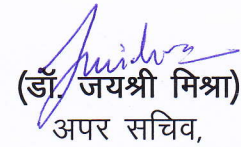 (डॉ. जयश्री मिश्रा)
अपर सचिव,